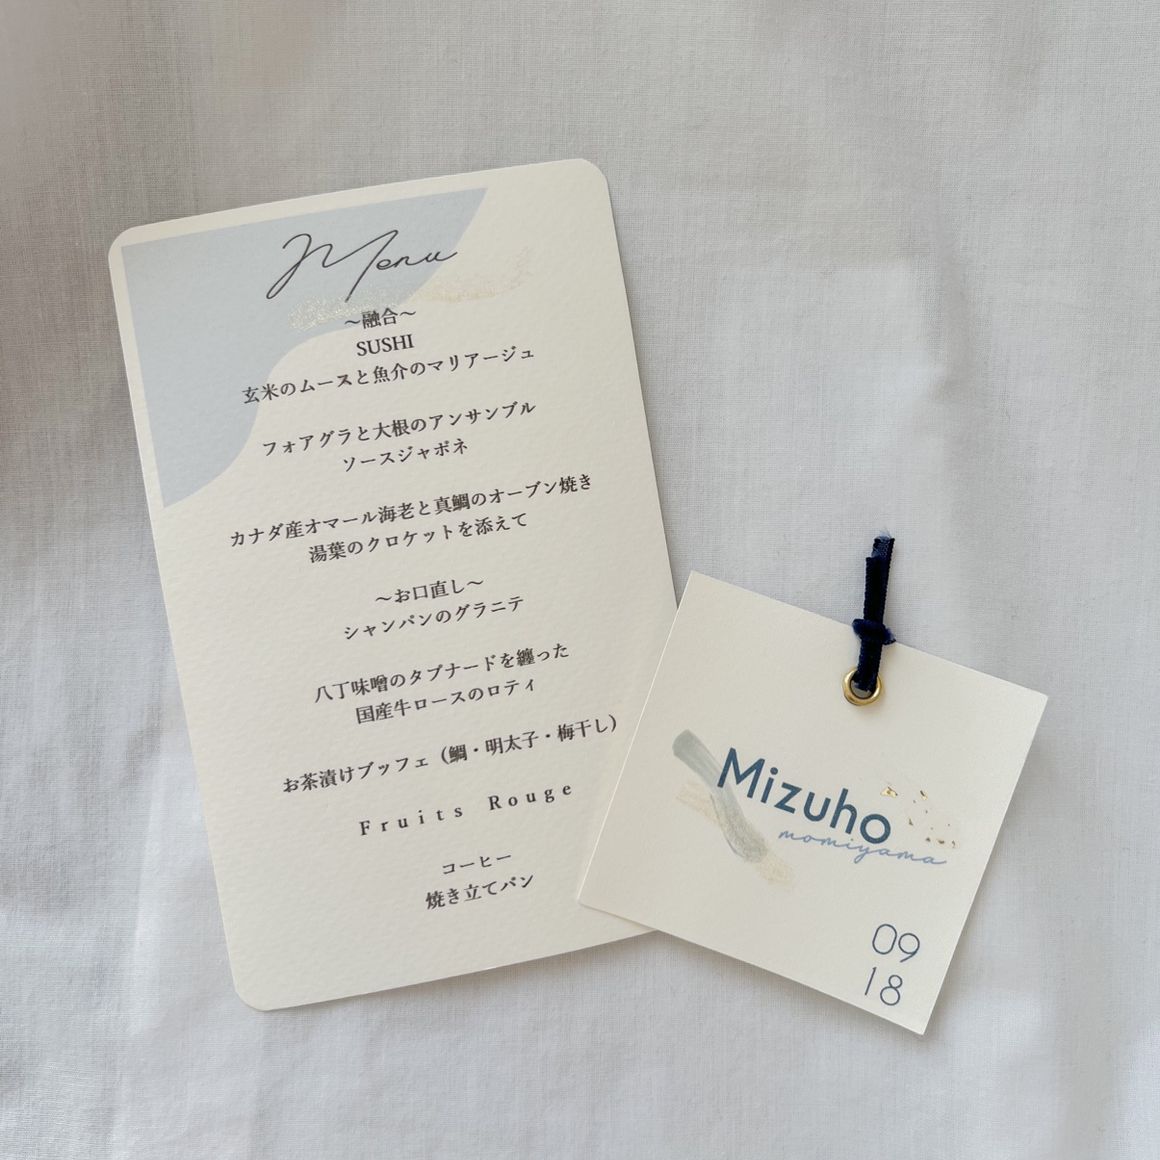 Menu
～融合～
SUSHI
玄米のムースと魚介のマリアージュ
フォアグラと大根のアンサンブル
ソースジャポネ
カナダ産オマール海老と真鯛のオーブン焼き
湯葉のクロケットを添えて
～お口直し～
シャンパンのグラニテ
八丁味噌のタプナードを纏った
国産牛ロースのロティ
お茶漬けブッフェ（鯛・明太子・梅干し）
Fruits Rouge
コーヒー
焼き立てパン
Mizuho
momiyama
09
18